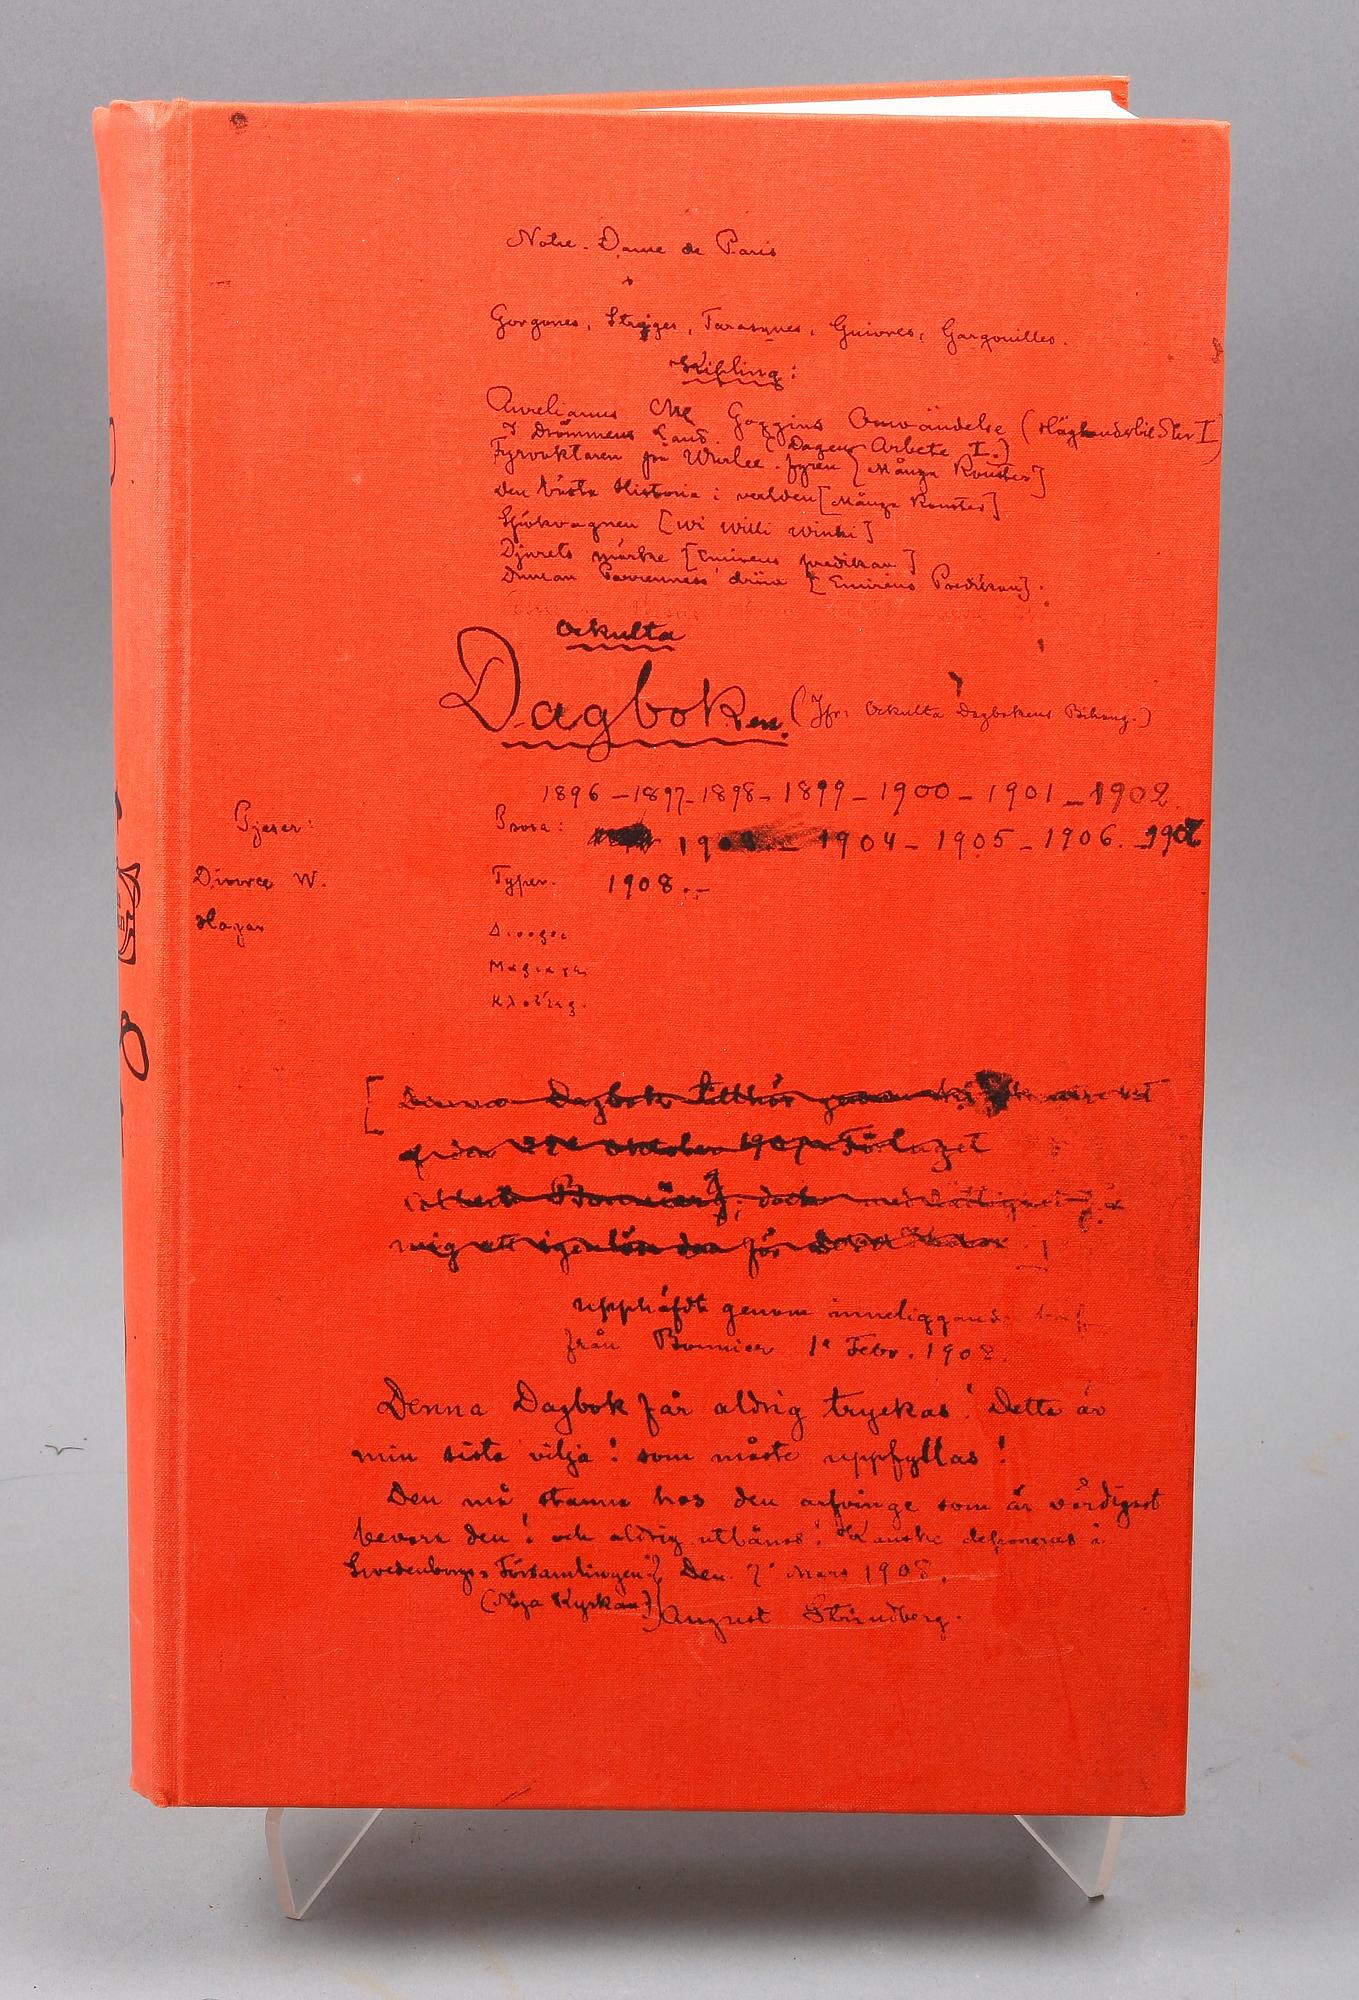 Notre-Dame de Paris
Gorgones, Stryges, Tarasques, Guivres, Gargouilles.
Kipling:
Aurelianus Mc Goggins Omvändelse (Höglandsbilder I)
I Drömmens Land. (Dagens Arbete I.)
Fyrvaktaren på Wurlee-fyren [Många Konster]
Den bästa Historia i verlden [Många Konster]
Spökvagnen [Wi Willi Winki]
Djurets märke [Emirens predikan]
Duncan Parrenness' dröm [Emirens Predikan].
Ockulta
Dagboken. (Jfr: Ockulta Dagbokens Bihang.)
1896 – 1897 – 1898 – 1899 – 1900 – 1901 – 1902.
Pjeser: Prosa: 190 – 1904 – 1905 – 1906. – 1907
Divorce W. Typer. 1908. –
Hagar
[Denna Dagbok tillhör genom
från oktober 1907 Förlaget
Albert Bonnier, dock med rättighet f.
mig att igenlösa den för
upphäfdt genom inneliggande
från Bonnier 1a Febr. 1908.
Denna Dagbok får aldrig tryckas! Detta är
min sista vilja! som måste uppfyllas!
Den må stanna hos den arfvinge som är värdigast
bevara den! och aldrig utlånas! Kanske deponeras i
Swedenborgs-Församlingen? Den 7e Mars 1908.
(Nya Kyrkan) August Strindberg.